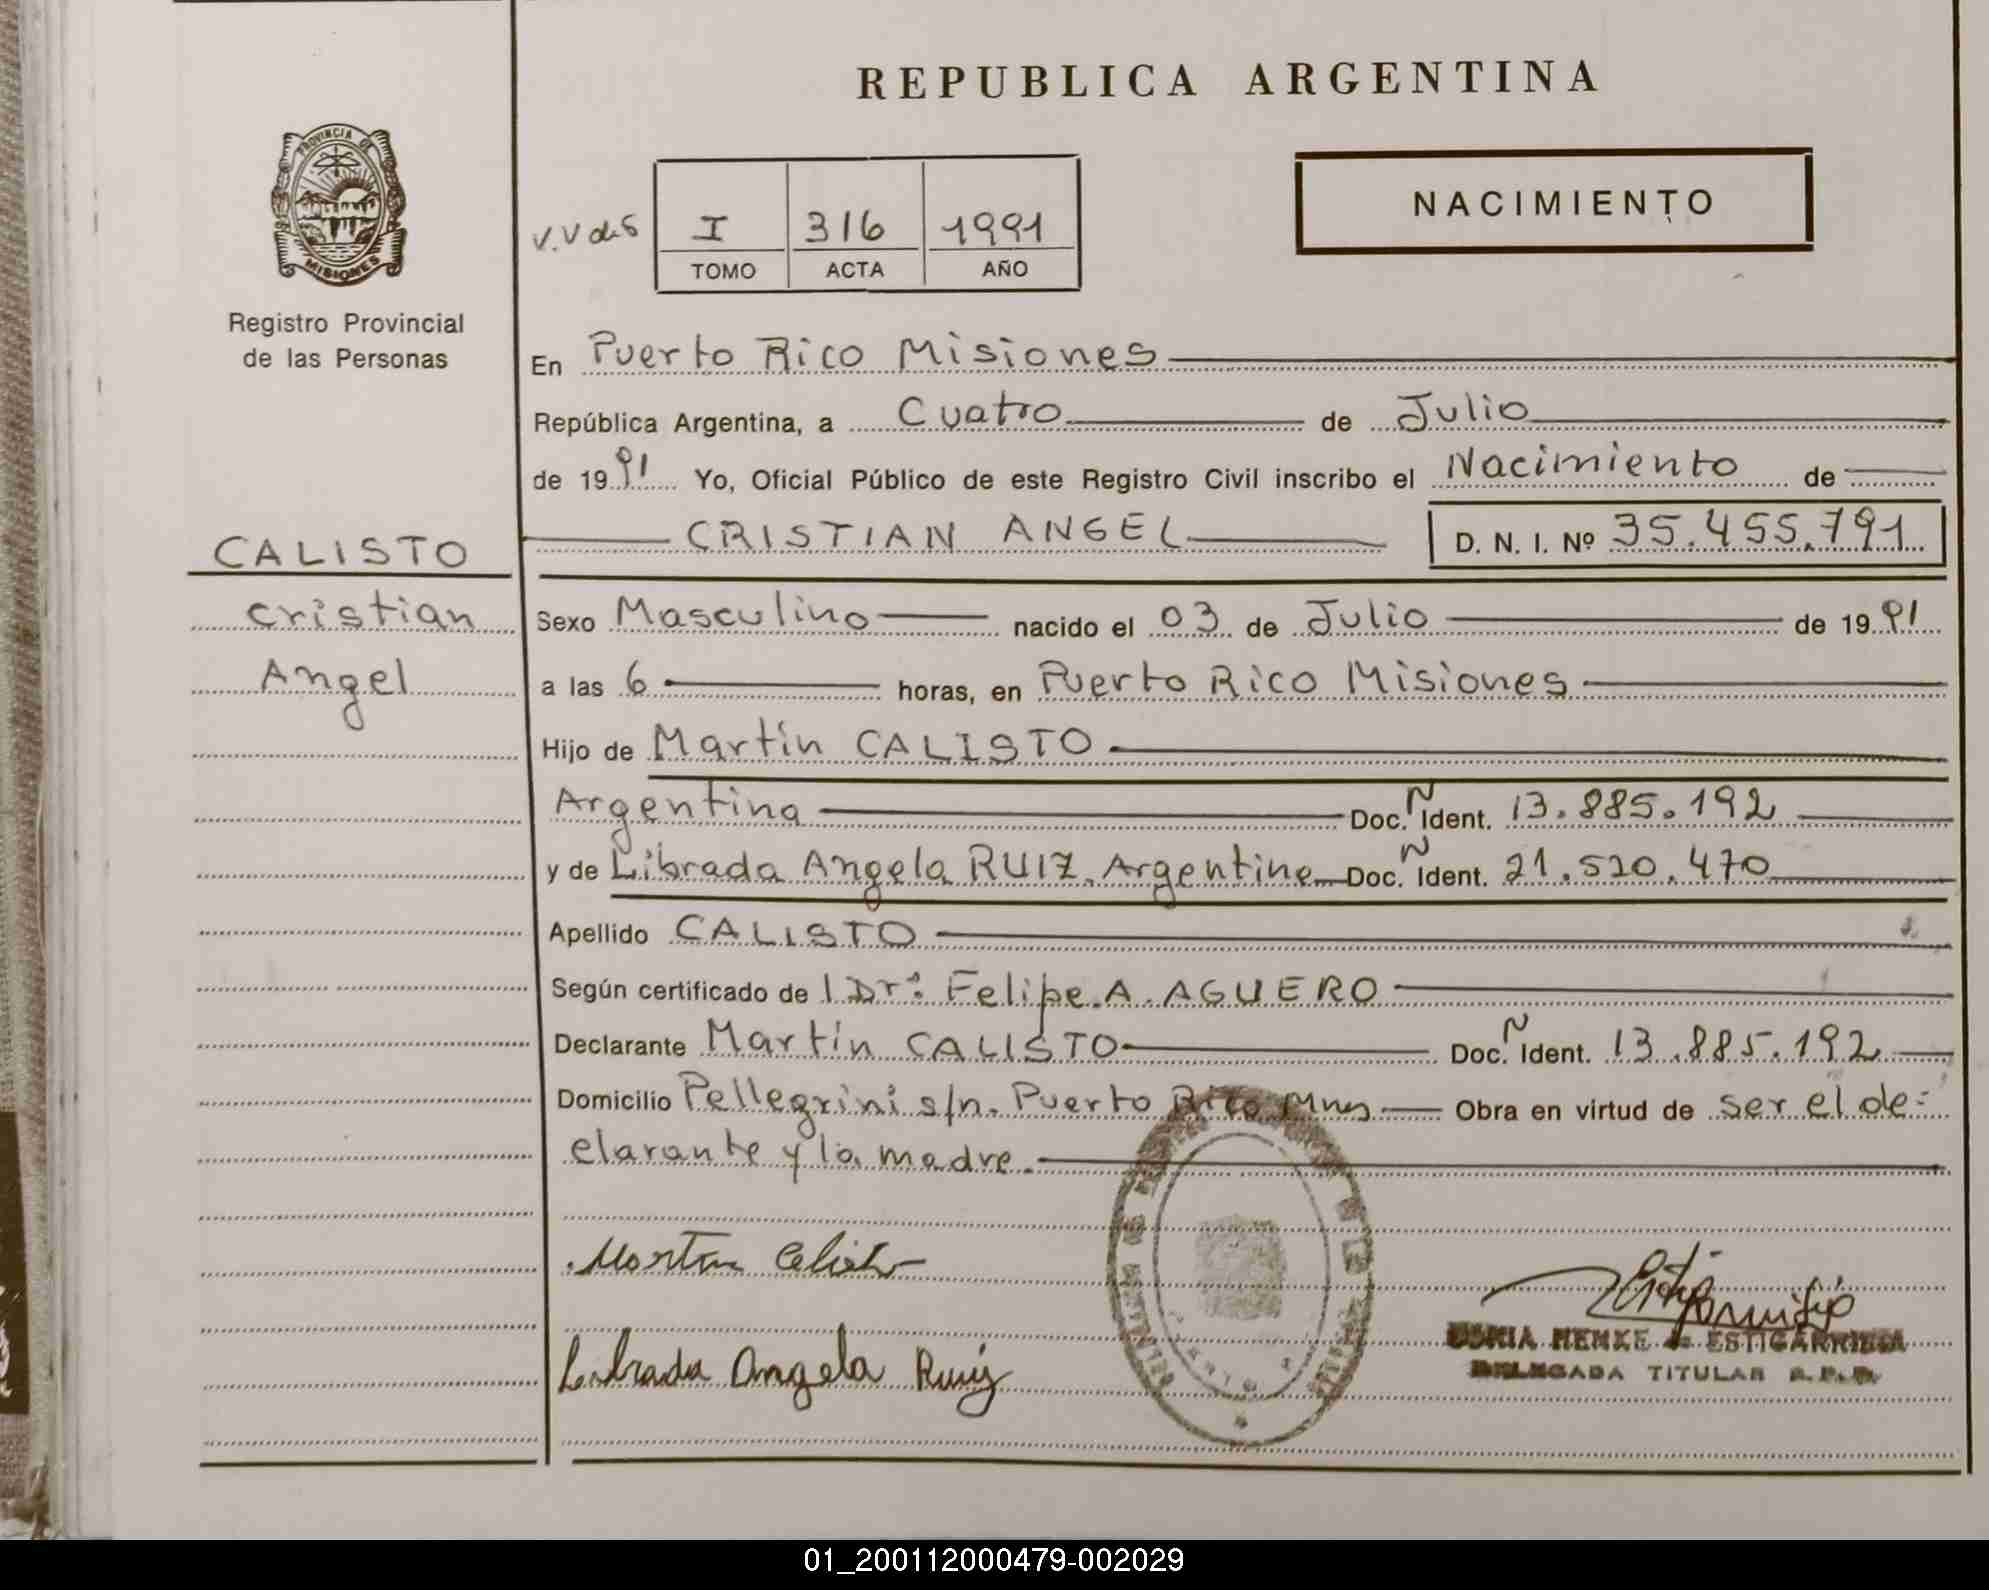 REPUBLICA ARGENTINA
PROVINCIA DE
MISIONES
Registro Provincial
de las Personas
NACIMIENTO
I 316 1991
TOMO ACTA AÑO
En Puerto Rico Misiones
República Argentina, a Cuatro de Julio
de 1991 Yo, Oficial Público de este Registro Civil inscribo el Nacimiento de
CRISTIAN ANGEL D. N. I. Nº 35.455.791
CALISTO
Cristian
Angel
Sexo Masculino nacido el 03 de Julio de 1991
a las 6 horas, en Puerto Rico Misiones
Hijo de Martín CALISTO
Argentina Doc. N Ident. 13.885.192
y de Librada Angela RUIZ. Argentina Doc. N Ident. 21.520.470
Apellido CALISTO
Según certificado de Felipe A. AGUERO
Declarante Martín CALISTO Doc. N Ident. 13.885.192
Domicilio Pellegrini s/n. Puerto Rico Mnes Obra en virtud de ser el de-
clarante y la madre.
Martin Calisto
Librada Angela Ruiz
HENKE de ESTIGARRIBIA
DELEGADA TITULAR R.P.P.
01_200112000479-002029